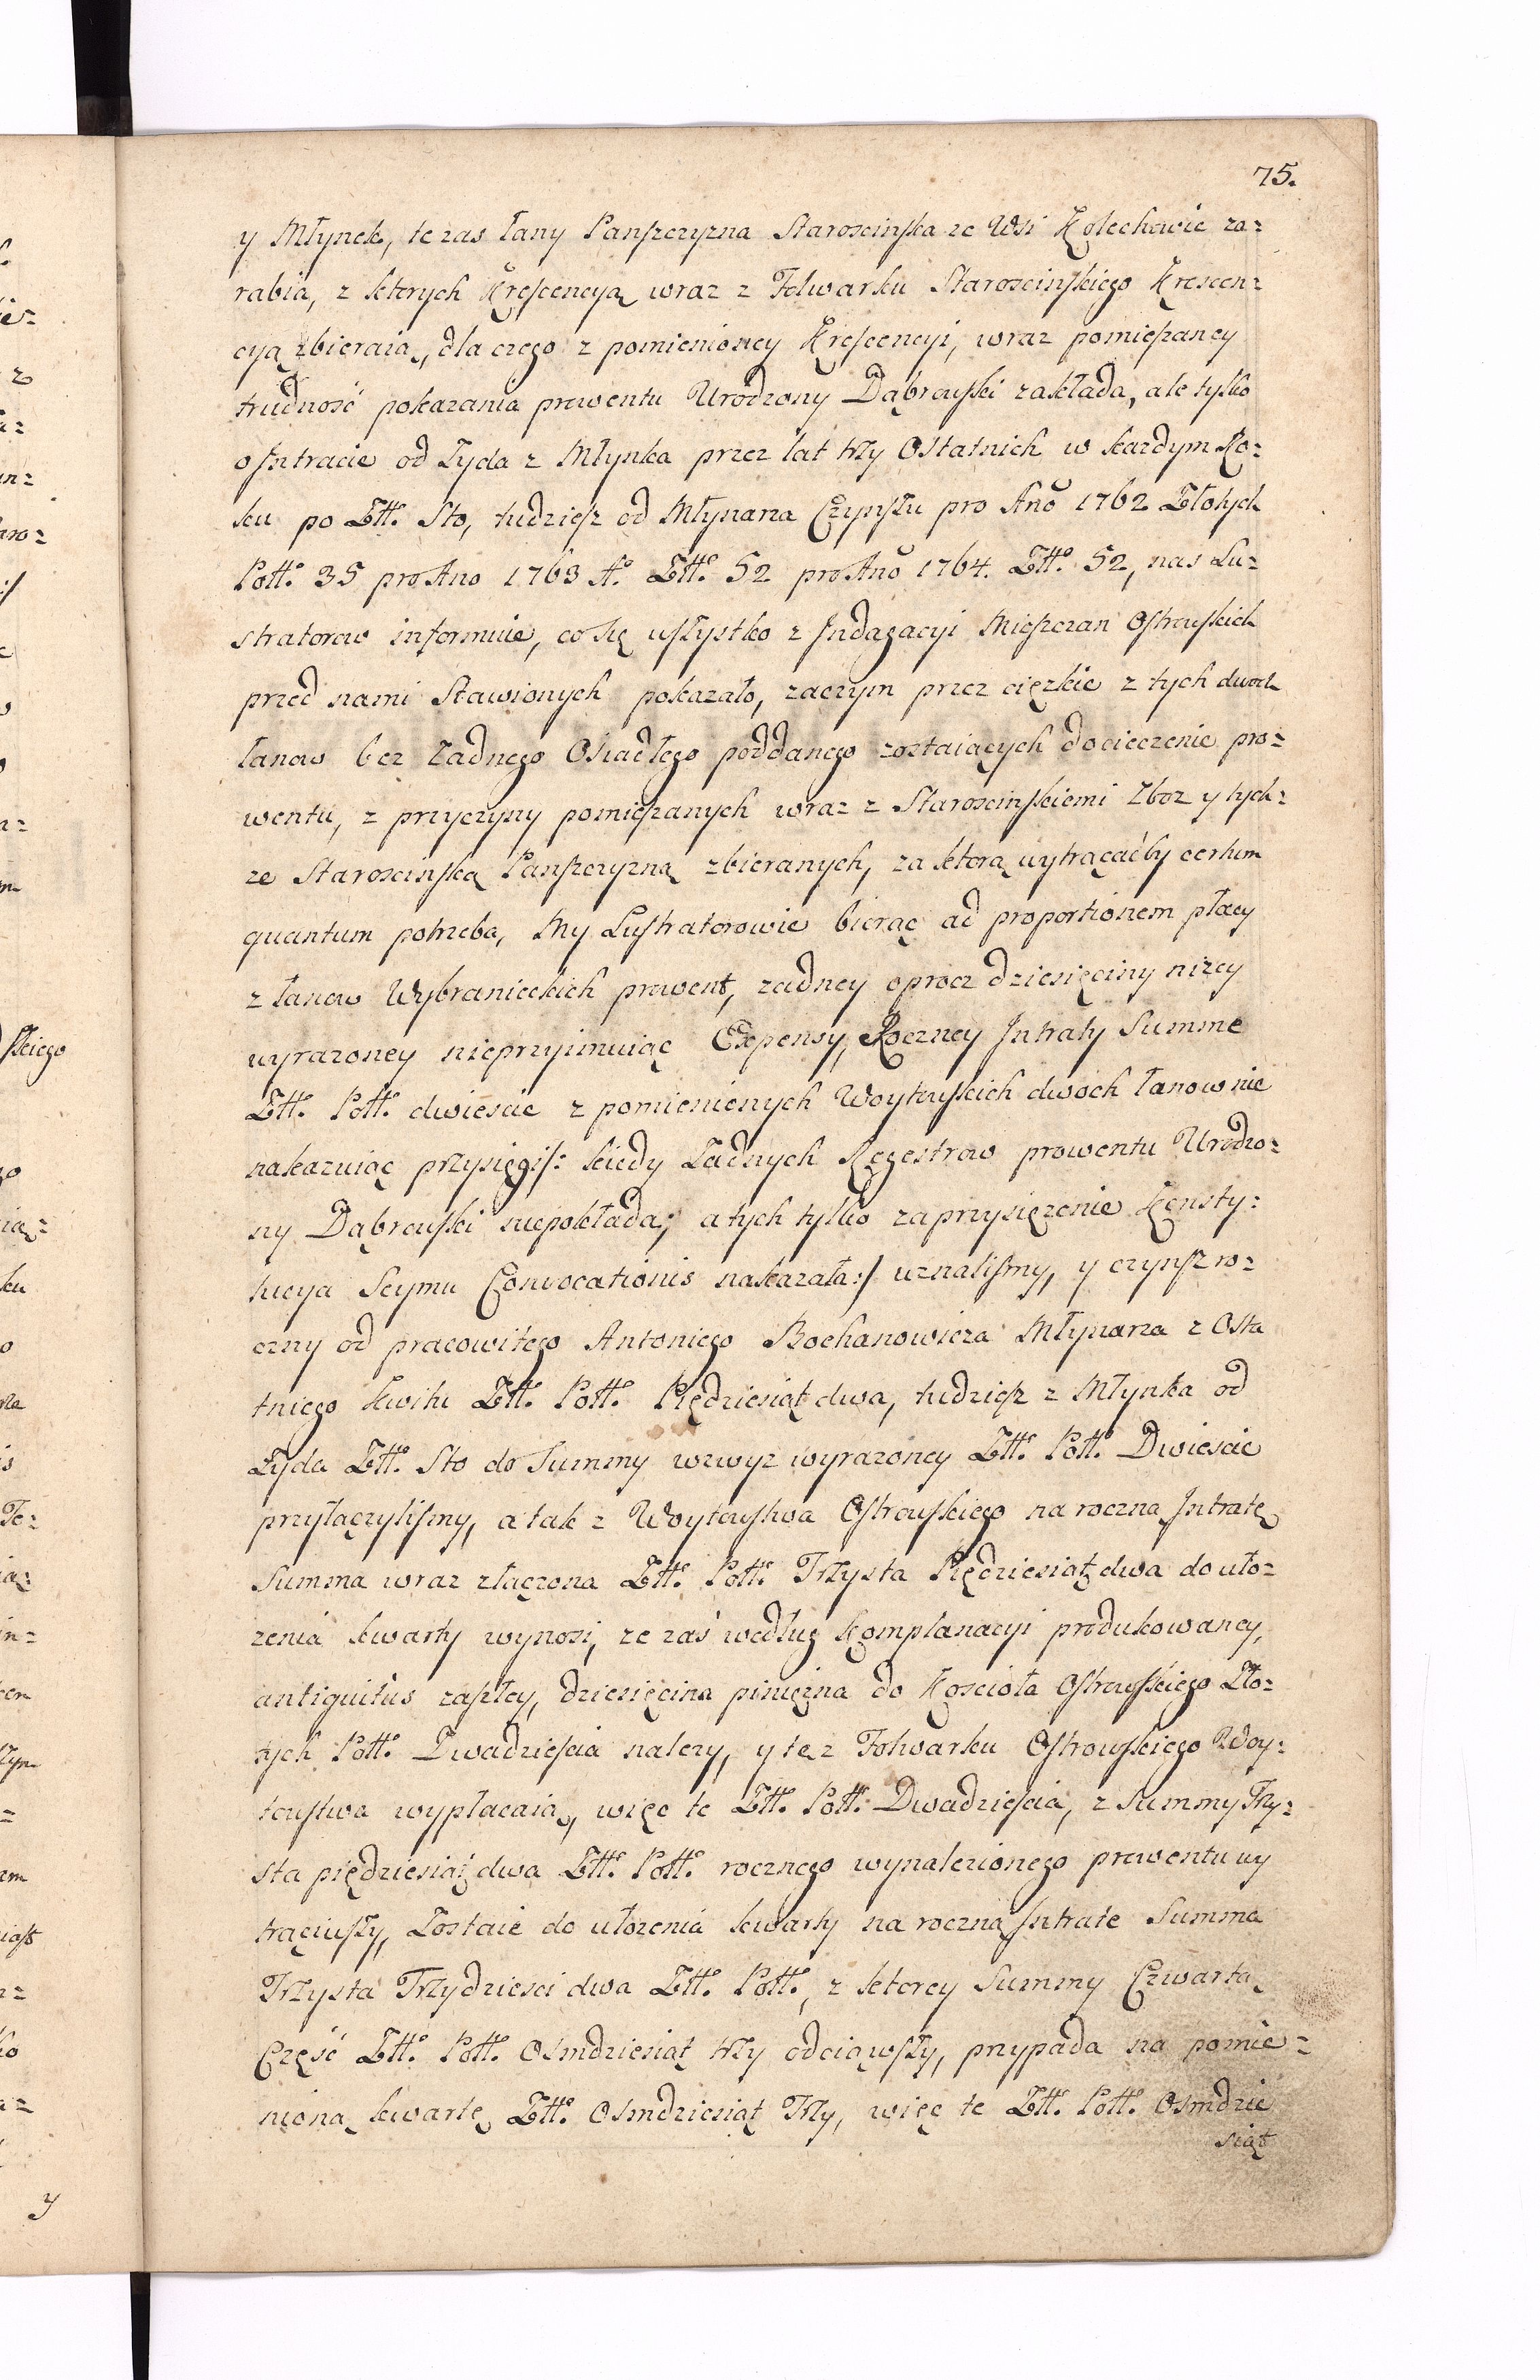 75.
y Młynek, te zas łany Panszczyzna Staroscinska ze Wsi Kolechowic za=
rabia, z ktorych Krescencyą wraz z Folwarku Staroscinskiego Krescen=
cyą zbieraią, dla czego z pomienioney Krescencyi, wraz pomieszaney
trudność pokazania prowentu Urodzony Dąbrowski zakłada, ale tylko
o Intracie od Zyda z Młynka przez lat trzy Ostatnich w kazdym Ro=
ku po Złł. Sto, tudziesz od Młynarza Czynszu pro Ano 1762 Złotych
Poll. 35 pro Ano 1763 A. Złł. 52 pro Ano 1764. Złł. 52, nas Lu=
stratorow informuie, co się wszystko z Indagacyi Mieszczan Ostrowskich
przed nami Stawionych pokazało, zaczym przez cięzkie z tych dwoch
łanow bez Zadnego Osiadłego poddanego zostaiących docieczenie pro=
wentu, z przyczyny pomieszanych wraz z Staroscinskiemi Zboz y tych=
ze Staroscinską Panszczyzną zbieranych, za ktorą wytrącaćby certum
quantum potrzeba, My Lustratorowie bierąc ad proportionem płacy
z łanow Wybranieckich prowent, zadney oprocz dziesięciny nizey
wyrazoney nieprzyimuiąc Expensy, Roczney Intraty Summe
Złł. Poll. dwiescie z pomienionych Woytowskich dwoch łanow nie
nakazuiąc przysięgi/: kiedy Zadnych Regestrow prowentu Urodzo=
ny Dąbrowski niepokłada; a tych tylko zaprzysięzenie Konsty=
tucya Seymu Convocationis nakazała:/ uznalismy, y czynsz ro=
czny od pracowitego Antoniego Bochanowicza Młynarza z Osta
tniego kwitu Złł. Poll. Piędziesiąt dwa, tudziesz z Młynka od
Zyda Złł. Sto do Summy wzwyz wyrazoney Złł. Poll. Dwiescie
przyłączylismy, a tak z Woytowstwa Ostrowskiego na roczną Intratę
Summa wraz złączona Złł. Poll. Trzysta Piędziesiąt dwa do uło=
zenia kwarty wynosi, ze zaś według Komplanacyi produkowaney,
antiquitus zaszłey, dziesięcina pinięzna do Koscioła Ostrowskiego Zło=
tych Poll. Dwadziescia nalezy, y tę z Folwarku Ostrowskiego Woy=
towstwa wypłacaią, więc te Złł. Poll. Dwadziescia, z Summy Trzy=
sta piędziesiąt dwa Złł. Poll. rocznego wynalezionego prowentu wy
trąciwszy, Zostaie do ułozenia kwarty na roczną Intrate Summa
Trzysta Trzydziesci dwa Złł. Poll., z ktorey Summy Czwartą
Część Złł. Poll. Osmdziesiąt trzy odciąwszy, przypada na pomie=
nioną kwartę Złł. Osmdziesiąt Trzy, więc te Złł. Poll. Osmdzie
siąt